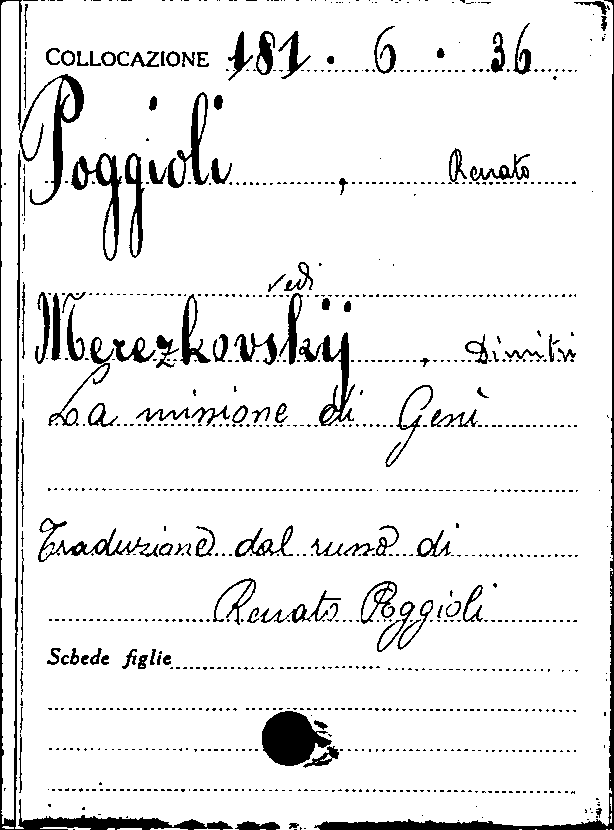 COLLOCAZIONE 181 . 6 . 36
Poggioli , Renato
vedi
Merezkovskij , Dimitri
La missione di Gesù
Traduzione dal russo di
Renato Poggioli
Schede figlie